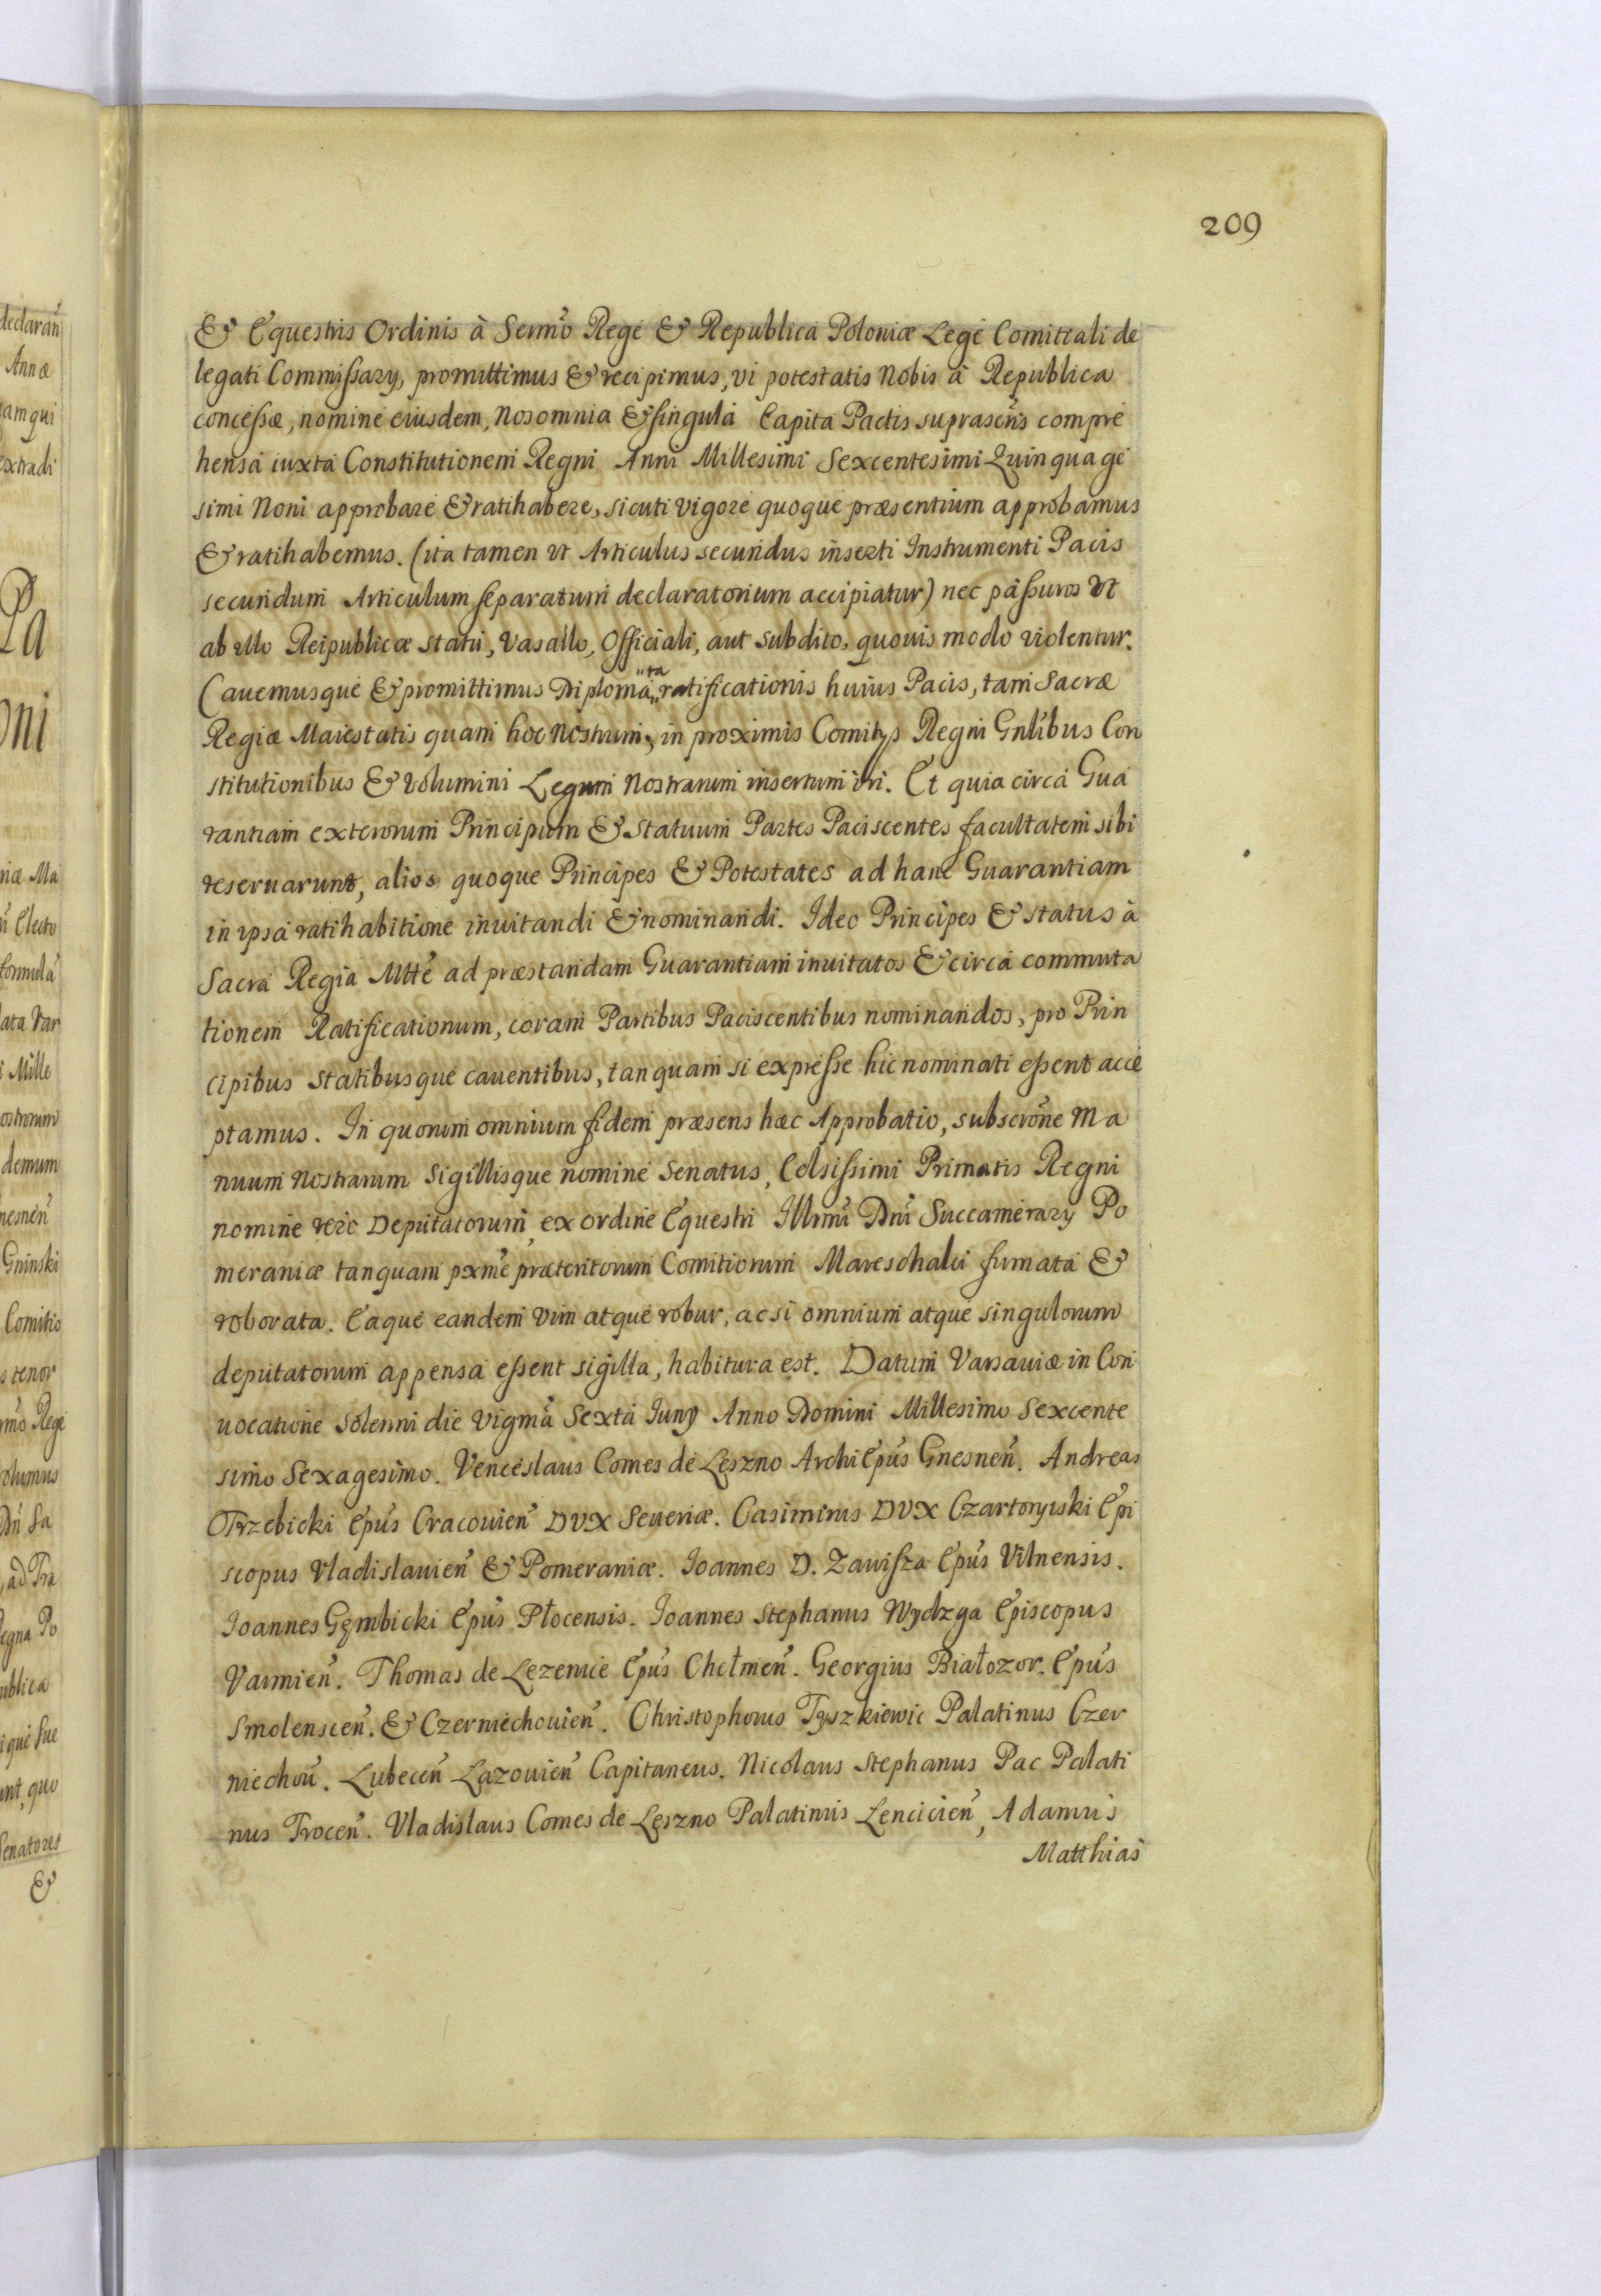 209
& Equestris Ordinis à Sermo Rege & Republica Poloniæ Lege Comitiali de
legati Commissarÿ, promittimus & recipimus, vi potestatis Nobis à Republica
concessæ, nomine eiusdem, Nos omnia & singula Capita Pactis suprascris compre
hensa iuxta Constitutionem Regni Anni Millesimi Sexcentesimi Quinquage
simi Noni approbare & ratihabere, sicuti vigore quoque præsentium approbamus
& ratihabemus. (ita tamen ut Articulus secundus inserti Instrumenti Pacis
secundum Articulum separatum declaratorium accipiatur) nec passuros ut
ab ullo Reipublicæ statu, Vasallo, Officiali, aut subdito, quovis modo violentur.
Cauemusque & promittimus Diplomata ratificationis huius Pacis, tam Sacræ
Regiæ Maiestatis quam hoc Nostrum, in proximis Comitÿs Regni Gnlibus Con
stitutionibus & Volumini Legum Nostrarum insertum iri. Et quia circa Gua
rantiam exterorum Principum & Statuum Partes Paciscentes facultatem sibi
reseruarunt, alios quoque Principes & Potestates ad hanc Guarantiam
in ipsa ratihabitione inuitandi & nominandi. Ideo Principes & status à
Sacra Regia Mtte ad præstandam Guarantiam inuitatos & circa commuta
tionem Ratificationum, coram Partibus Paciscentibus nominandos, pro Prin
cipibus Statibusque cauentibus, tanquam si expresse hic nominati essent acce
ptamus. In quorum omnium fidem præsens hæc Approbatio, subscrone Ma
nuum Nostrarum Sigillisque nomine Senatus, Celsissimi Primatis Regni
nomine vero Deputatorum, ex ordine Equestri Illrmi Dni Succamerarÿ Po
meraniæ tanquam pxme præteritorum Comitiorum Mareschalci firmata &
roborata. Eaque eandem vim atque robur, ac si omnium atque singulorum
deputatorum appensa essent sigilla, habitura est. Datum Varsauiæ in Con
uocatione solenni die Vigma Sexta Iunÿ Anno Domini Millesimo Sexcente
simo Sexagesimo. Venceslaus Comes de Leszno ArchiEpus Gnesnen. Andreas
Trzebicki Epus Cracouien DVX Seueriæ. Casimirus DVX Czartoryiski Epi
scopus Vladislauien & Pomeraniæ. Ioannes D. Zawisza Epus Vilnensis.
Ioannes Gębicki Epus Płocensis. Ioannes Stephanus Wydzga Episcopus
Varmien. Thomas de Lezenice Epus Chełmen. Georgius Białozor. Epus
Smolenscen. & Czerniechouien. Christophorus Tyszkiewic Palatinus Czer
niechou. Lubecen Łazouien Capitaneus. Nicolaus Stephanus Pac Palati
nus Trocen. Vladislaus Comes de Leszno Palatinus Lencicien, Adamus
Matthias
declaran
Annæ
extradi
Pa
oni
Electo
formula
i Mille
ostrorum
demum
Gninski
Comitio
s tenor
olumus
ad Tra
egna Po
ublica
quo
Senatores
&